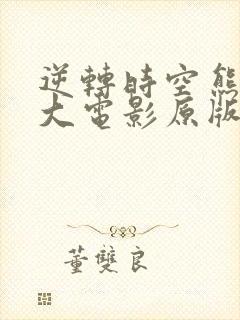 逆轉時空熊
大電影原版
董雙良